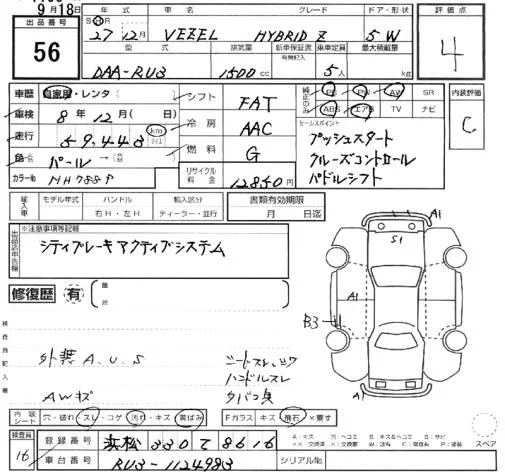 9月18日
出品番号
56
年式 車名 グレード ドア・形状
S H R
27 12月 VEZEL HYBRID Z 5 W
型式 排気量 新車保証書 乗車定員 最大積載量
有無記入
DAA-RU3 1500cc 5人 kg
評価点
4
車歴 自家用・レンタ
車検 8年12月( 日)
走行 59,443 km マイル
色 パール→
カラーNo NH788P
シフト FAT
冷房 AAC
燃料 G
リサイクル料金 12850円
純正のみ PS PW AW SR
ABS エアB TV ナビ
セールスポイント
プッシュスタート
クルーズコントロール
パドルシフト
内装評価
C
輸入車 モデル年式 ハンドル 輸入区分
右H・左H ディーラー・並行
書類有効期限
月 日迄
※注意事項等記載
シティブレーキアクティブシステム
修復歴 有
箇所
検査員記入欄
外装A.U.S
AWキズ
シートスレ、シワ
ハンドルスレ
タバコ臭
A1
S1
A1
B3
A1
内装シート 穴・破れ・スレ・コゲ・汚れ・キズ・黄ばみ
Fガラス キズ・飛石・×要す
スペア
検査員
16
登録番号 浜松 330 て 8616
車台番号 RU3-1124983
シリアルNo.
A:キズ U:ヘコミ B:キズ&ヘコミ S:サビ